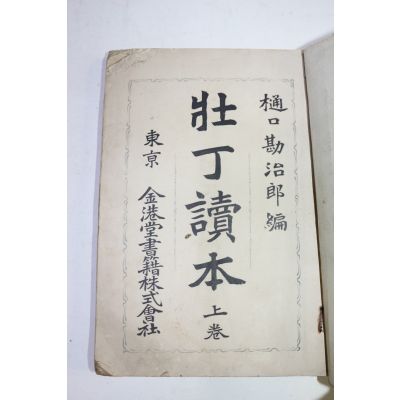 樋口勘治郎編
壯丁讀本
上卷
東亰
金港堂書籍株式會社